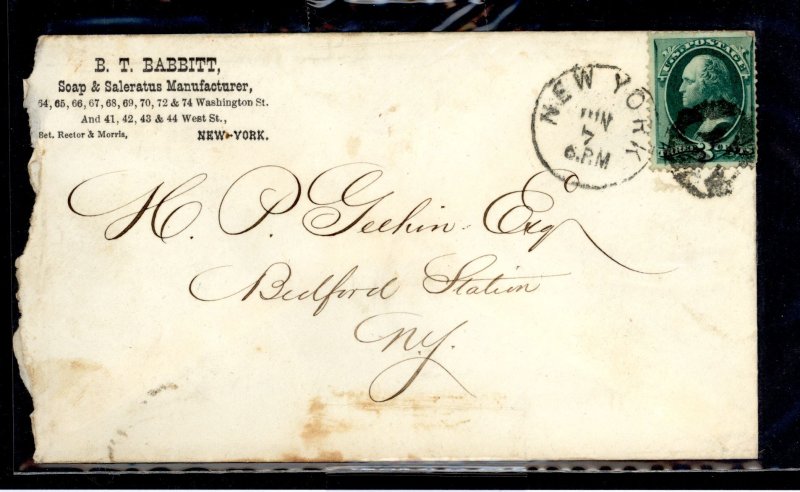 B. T. BABBITT,
Soap & Saleratus Manufacturer,
64, 65, 66, 67, 68, 69, 70, 72 & 74 Washington St.
And 41, 42, 43 & 44 West St.,
Bet. Rector & Morris, NEW-YORK.
NEW YORK
JUN
7
6 PM
U.S. POSTAGE
THREE 3 CENTS
H. P. Geehin Esq
Bedford Station
N.Y.